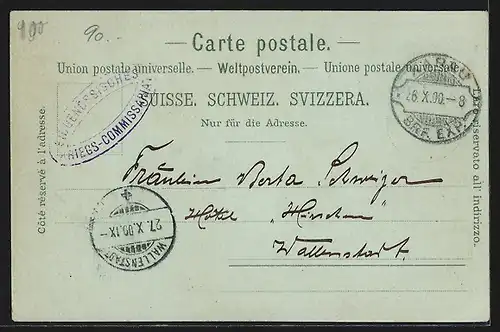 900 90.
Carte postale.
Union postale universelle. — Weltpostverein. — Unione postale universale.
SUISSE. SCHWEIZ. SVIZZERA.
Nur für die Adresse.
Côté réservé à l'adresse.
Lato riservato all' indirizzo.
EIDGENÖSSISCHES
KRIEGS-COMMISSARIAT
26.X.00.-8
BRF. EXP.
Fräulein Berta Schweizer
Hôtel „Hirschen"
Wallenstadt.
27.X.00.IX-
WALLENSTADT